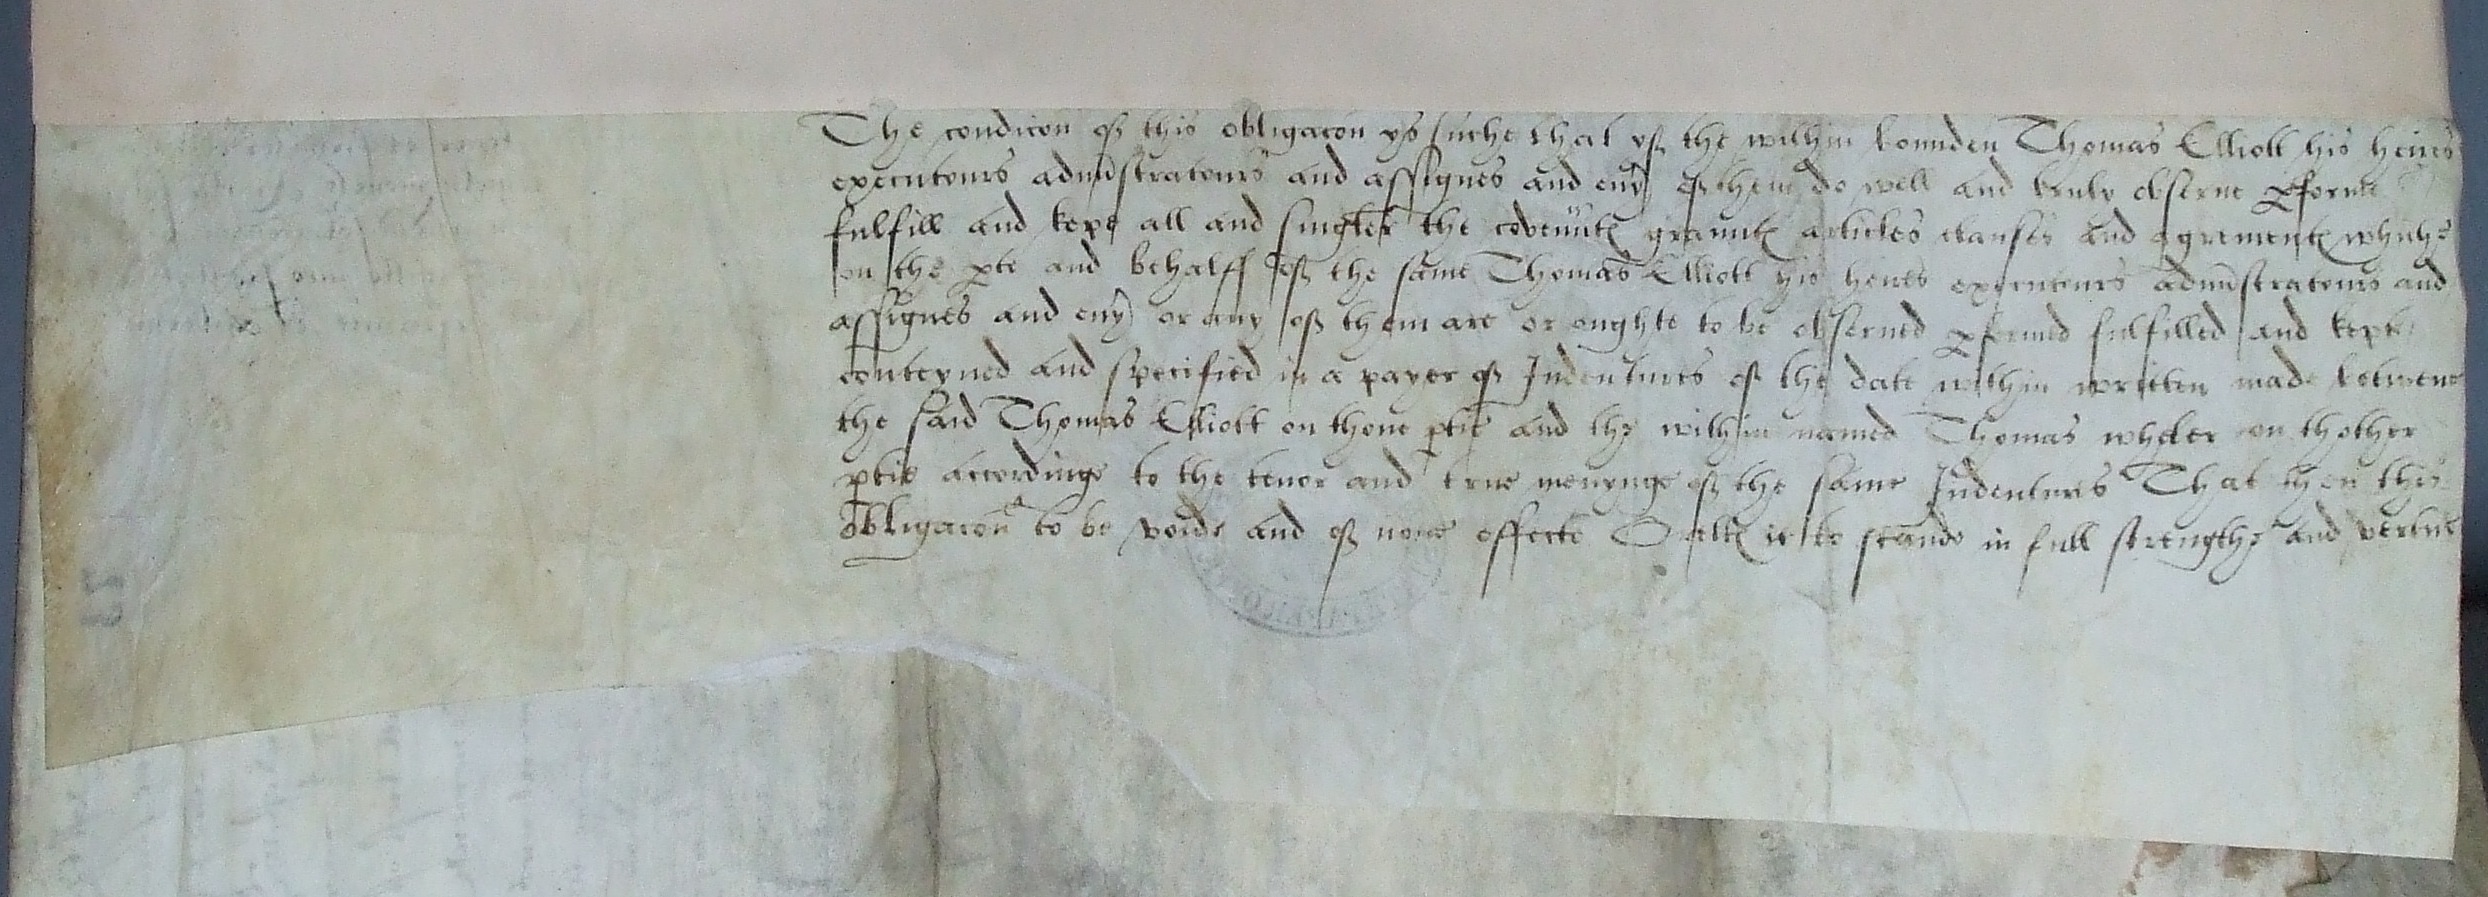 The condicon of this obligacon ys suche that yf the within bounden Thomas Elliott his heires
executours admistratours and assignes and euy of them do well and truly obserue pforme
fulfill and kepe all and singler the covenntes grauntes articles clauses and agrementes whiche
on the pte and behalff of the same Thomas Elliott his heires executours admistratours and
assignes and euy or any of them are or oughte to be obserued pformed fulfilled and kepte
conteyned and specified in a payer of Indentures of the date within written made betwene
the said Thomas Elliott on thone ptie and the within named Thomas wheler on thother
ptie accordinge to the tenor and true menynge of the same Indentures That then this
obligacon to be voide and of none effecte Or elles it to stande in full strengthe and vertue